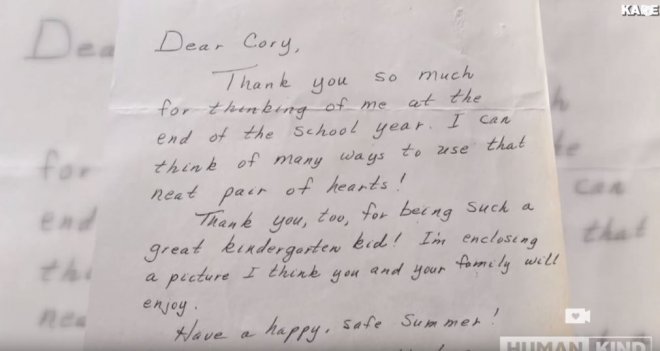 KARE
Dear Cory,
Thank you so much
for thinking of me at the
end of the school year. I can
think of many ways to use that
neat pair of hearts!
Thank you, too, for being such a
great kindergarten kid! I'm enclosing
a picture I think you and your family will
enjoy.
Have a happy, safe Summer!
HUMANKIND
Dea
for
end
thi
nea
h
te
can
that